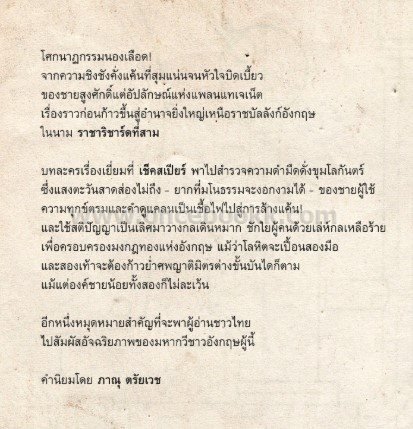 โศกนาฏกรรมนองเลือด!
จากความชิงชังคั่งแค้นที่สุมแน่นจนหัวใจบิดเบี้ยว
ของชายสูงศักดิ์แต่อัปลักษณ์แห่งแพลนแทเจเน็ต
เรื่องราวก่อนก้าวขึ้นสู่อำนาจยิ่งใหญ่เหนือราชบัลลังก์อังกฤษ
ในนาม ราชาริชาร์ดที่สาม
บทละครเรื่องเยี่ยมที่ เช็คสเปียร์ พาไปสำรวจความดำมืดดั่งขุมโลกันตร์
ซึ่งแสงตะวันสาดส่องไม่ถึง - ยากที่มโนธรรมจะงอกงามได้ - ของชายผู้ใช้
ความทุกข์ตรมและคำดูแคลนเป็นเชื้อไฟไปสู่การล้างแค้น!
และใช้สติปัญญาเป็นเลิศมาวางกลเดินหมาก ชักใยผู้คนด้วยเล่ห์กลเหลือร้าย
เพื่อครอบครองมงกุฎทองแห่งอังกฤษ แม้ว่าโลหิตจะเปื้อนสองมือ
และสองเท้าจะต้องก้าวย่ำศพญาติมิตรต่างขั้นบันไดก็ตาม
แม้แต่องค์ชายน้อยทั้งสองก็ไม่ละเว้น
อีกหนึ่งหมุดหมายสำคัญที่จะพาผู้อ่านชาวไทย
ไปสัมผัสอัจฉริยภาพของมหากวีชาวอังกฤษผู้นี้
คำนิยมโดย ภาณุ ตรัยเวช